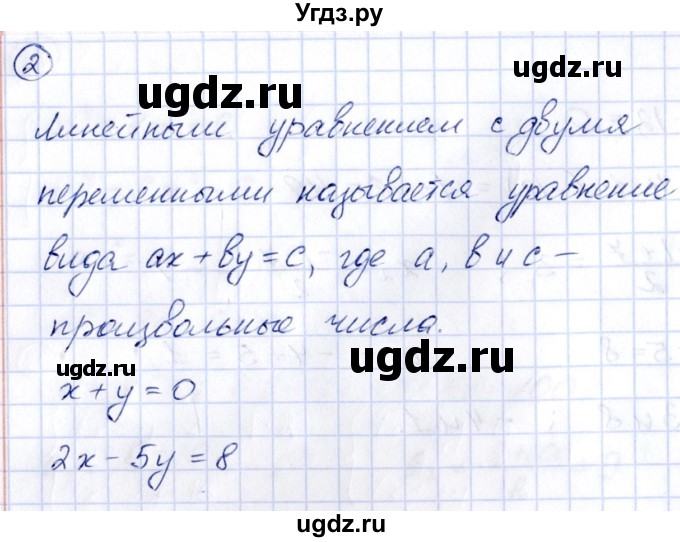 Угдз.ру
2
ugdz.ru
ugdz.ru
Линейным уравнением с двумя
переменными называется уравнение
вида ax+by=c, где a, b и c –
произвольные числа.
ugdz.ru
ugdz.ru
x+y=0
2x-5y=8
ugdz.ru
ugdz.ru